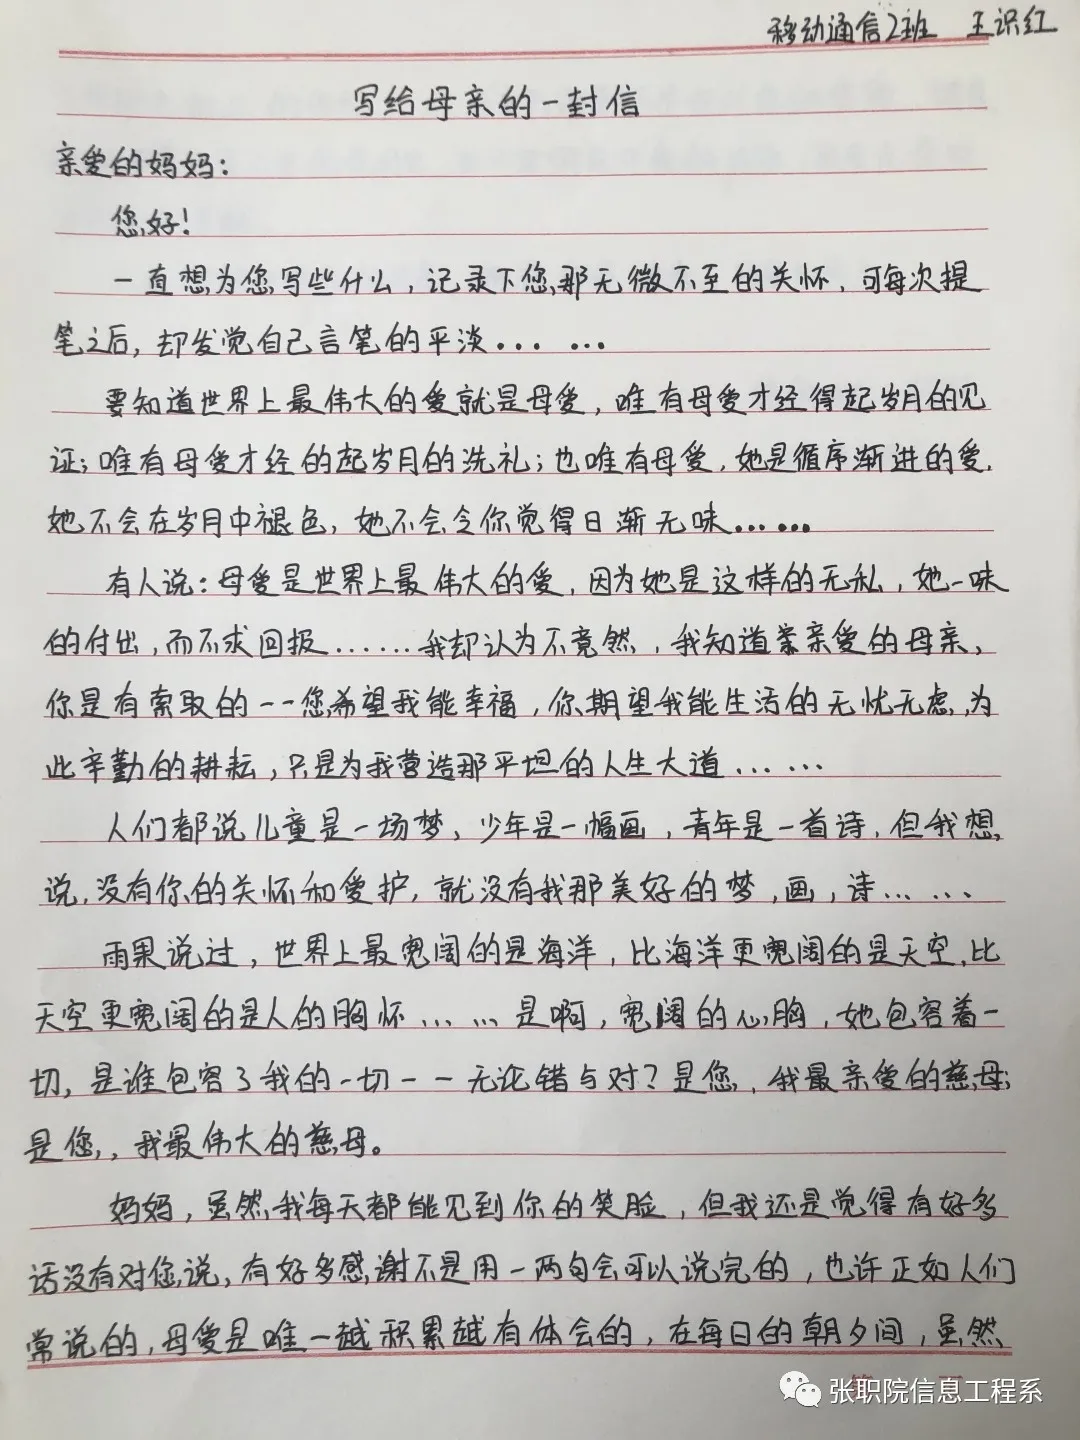 移动通信2班 王识红
写给母亲的一封信
亲爱的妈妈:
您好!
一直想为您写些什么,记录下您那无微不至的关怀,可每次提
笔之后,却发觉自己言笔的平淡... ...
要知道世界上最伟大的爱就是母爱,唯有母爱才经得起岁月的见
证;唯有母爱才经的起岁月的洗礼;也唯有母爱,她是循序渐进的爱,
她不会在岁月中褪色,她不会令你觉得日渐无味... ...
有人说:母爱是世界上最伟大的爱,因为她是这样的无私,她一味
的付出,而不求回报......我却认为不竟然,我知道亲爱的母亲,
你是有索取的--您希望我能幸福,你期望我能生活的无忧无虑,为
此辛勤的耕耘,只是为我营造那平坦的人生大道... ...
人们都说儿童是一场梦,少年是一幅画,青年是一首诗,但我想
说,没有你的关怀和爱护,就没有我那美好的梦,画,诗... ...
雨果说过,世界上最宽阔的是海洋,比海洋更宽阔的是天空,比
天空更宽阔的是人的胸怀... ...是啊,宽阔的心胸,她包容着一
切,是谁包容了我的一切--无论错与对?是您,我最亲爱的慈母;
是您,我最伟大的慈母。
妈妈,虽然我每天都能见到你的笑脸,但我还是觉得有好多
话没有对您说,有好多感谢不是用一两句会可以说完的,也许正如人们
常说的,母爱是唯一越积累越有体会的,在每日的朝夕间,虽然
张职院信息工程系